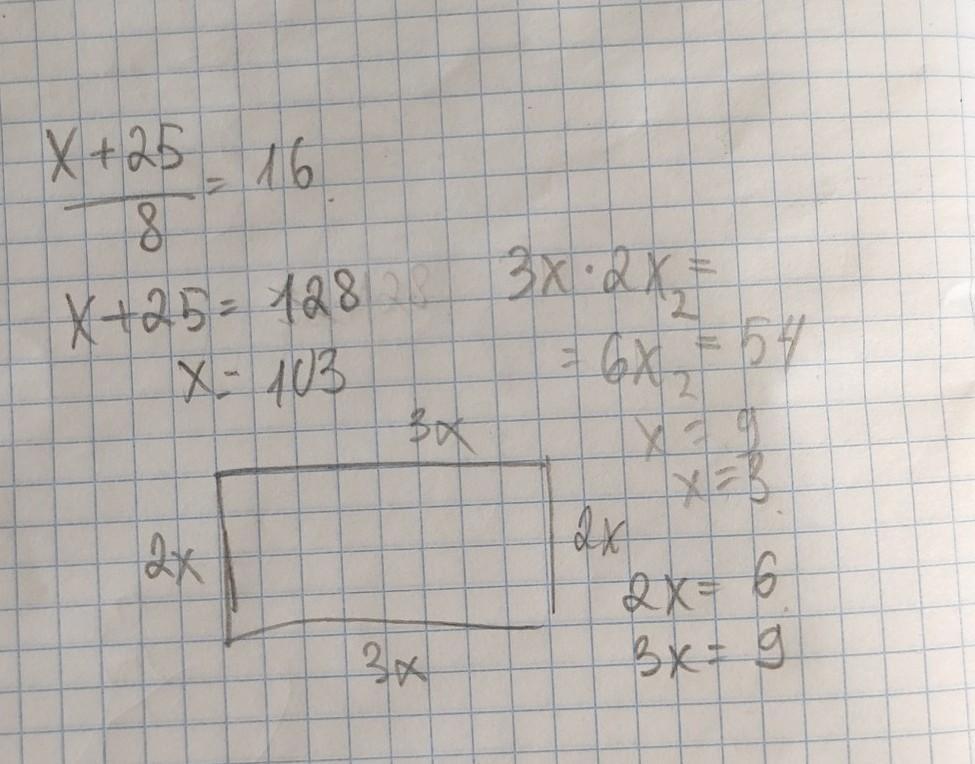 x+25
8
= 16
x+25= 128
x= 103
3x·2x₂=
= 6x₂ = 54
x = 9
x=3
3x
2x
2x
3x
2x= 6
3x= 9